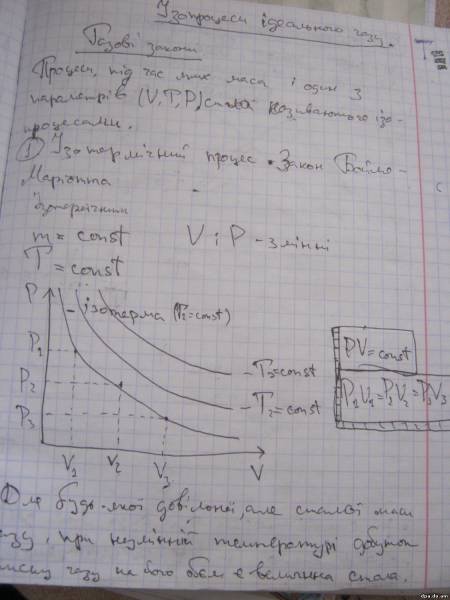 Ізопроцеси ідеального газу.
Газові закони
Процеси, під час яких маса і один з
параметрів (V,T,P) сталі називаються ізо-
процесами.
① Ізотермічний процес. Закон Бойля-
Маріотта
m = const V і P - змінні
T = const
P
- ізотерма (T₁=const)
P₁
P₂
P₃
- T₃=const
- T₂=const
V₁ V₂ V₃ V
PV=const
P₁V₁=P₂V₂=P₃V₃
Для будь-якої довільної, але сталої маси
газу, при незмінній температурі добуток
тиску газу на його об'єм є величина сталa.
dpa.da.am